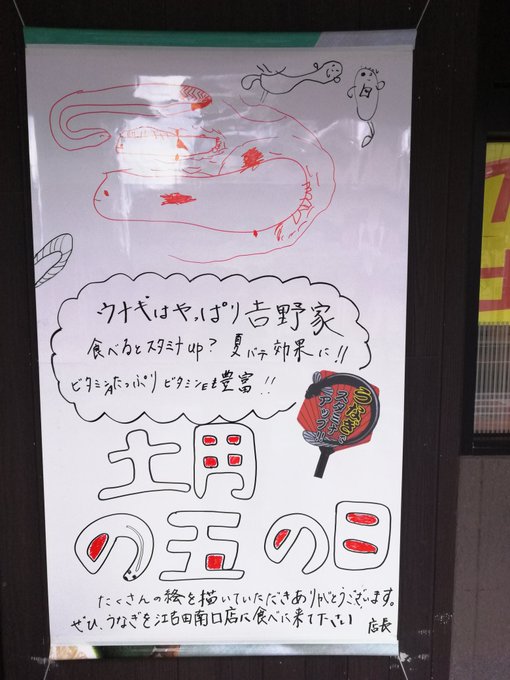 ウナギはやっぱり吉野家
食べるとスタミナup? 夏バテ効果に!!
ビタミンAたっぷり ビタミンEも豊富!!
うなぎで
スタミナ
アップ!!
土用
の五の日
たくさんの絵を描いていただきありがとうございます。
ぜひ、うなぎを江古田南口店に食べに来て下さい
店長